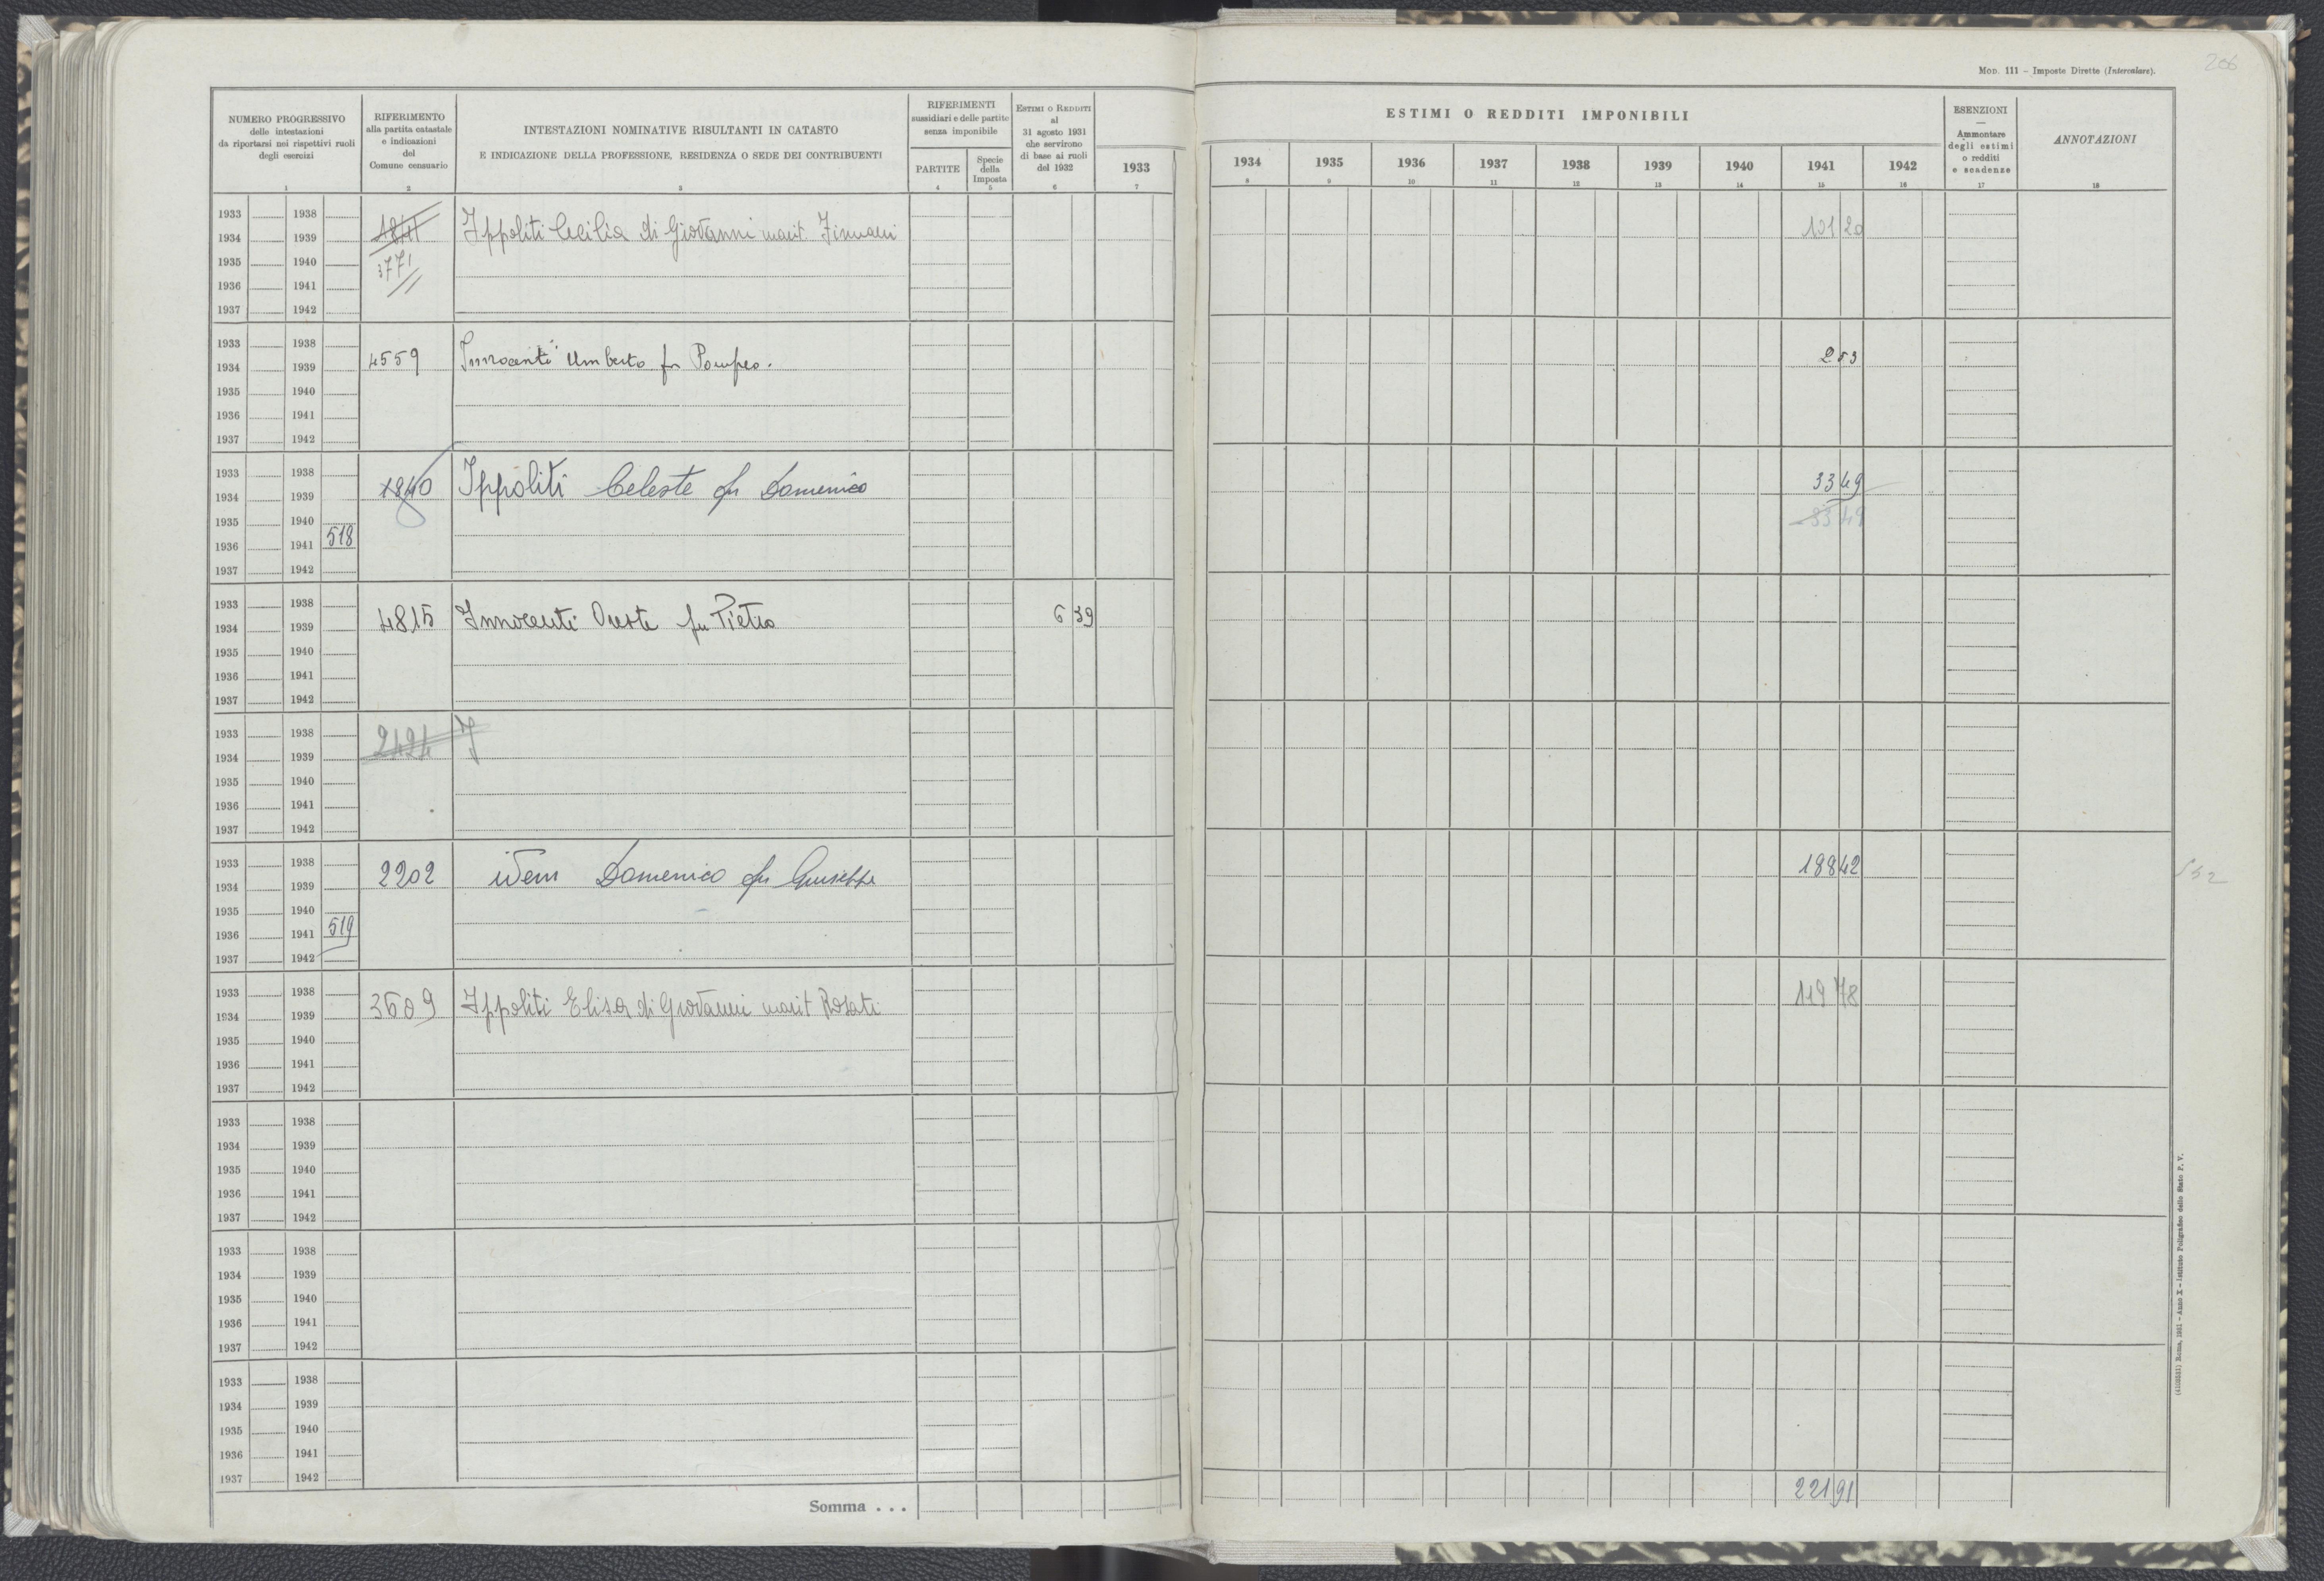 MOD. 111 – Imposte Dirette (Intercalare).
206
NUMERO PROGRESSIVO
delle intestazioni
da riportarsi nei rispettivi ruoli
degli esercizi
1
RIFERIMENTO
alla partita catastale
e indicazioni
del
Comune censuario
2
INTESTAZIONI NOMINATIVE RISULTANTI IN CATASTO
E INDICAZIONE DELLA PROFESSIONE, RESIDENZA O SEDE DEI CONTRIBUENTI
3
RIFERIMENTI
sussidiari e delle partite
senza imponibile
PARTITE
4
Specie
della
Imposta
5
ESTIMI O REDDITI
al
31 agosto 1931
che servirono
di base ai ruoli
del 1932
6
ESTIMI O REDDITI IMPONIBILI
1933 1934 1935 1936 1937 1938 1939 1940 1941 1942
7 8 9 10 11 12 13 14 15 16
ESENZIONI
—
Ammontare
degli estimi
o redditi
e scadenze
17
ANNOTAZIONI
18
1933 1938
1934 1939 1841 Ippoliti Cecilia di Giovanni marit. Firmani 101 20
1935 1940 3771
1936 1941
1937 1942
1933 1938
1934 1939 4559 Innocenti Umberto fu Pompeo. 2 53
1935 1940
1936 1941
1937 1942
1933 1938
1934 1939 1840 Ippoliti Celeste fu Domenico 33 49
1935 1940 33 49
1936 1941 518
1937 1942
1933 1938
1934 1939 4815 Innocenti Oreste fu Pietro 6 39
1935 1940
1936 1941
1937 1942
1933 1938
1934 1939 2424 I
1935 1940
1936 1941
1937 1942
1933 1938
1934 1939 2202 idem Domenico fu Giuseppe 188 42
1935 1940
1936 1941 519
1937 1942
1933 1938
1934 1939 3609 Ippoliti Elisa di Giovanni marit Rosati 119 78
1935 1940
1936 1941
1937 1942
1933 1938
1934 1939
1935 1940
1936 1941
1937 1942
1933 1938
1934 1939
1935 1940
1936 1941
1937 1942
1933 1938
1934 1939
1935 1940
1936 1941
1937 1942
Somma . . . 221 91
(4100531) Roma, 1931 – Anno X – Istituto Poligrafico dello Stato P. V.